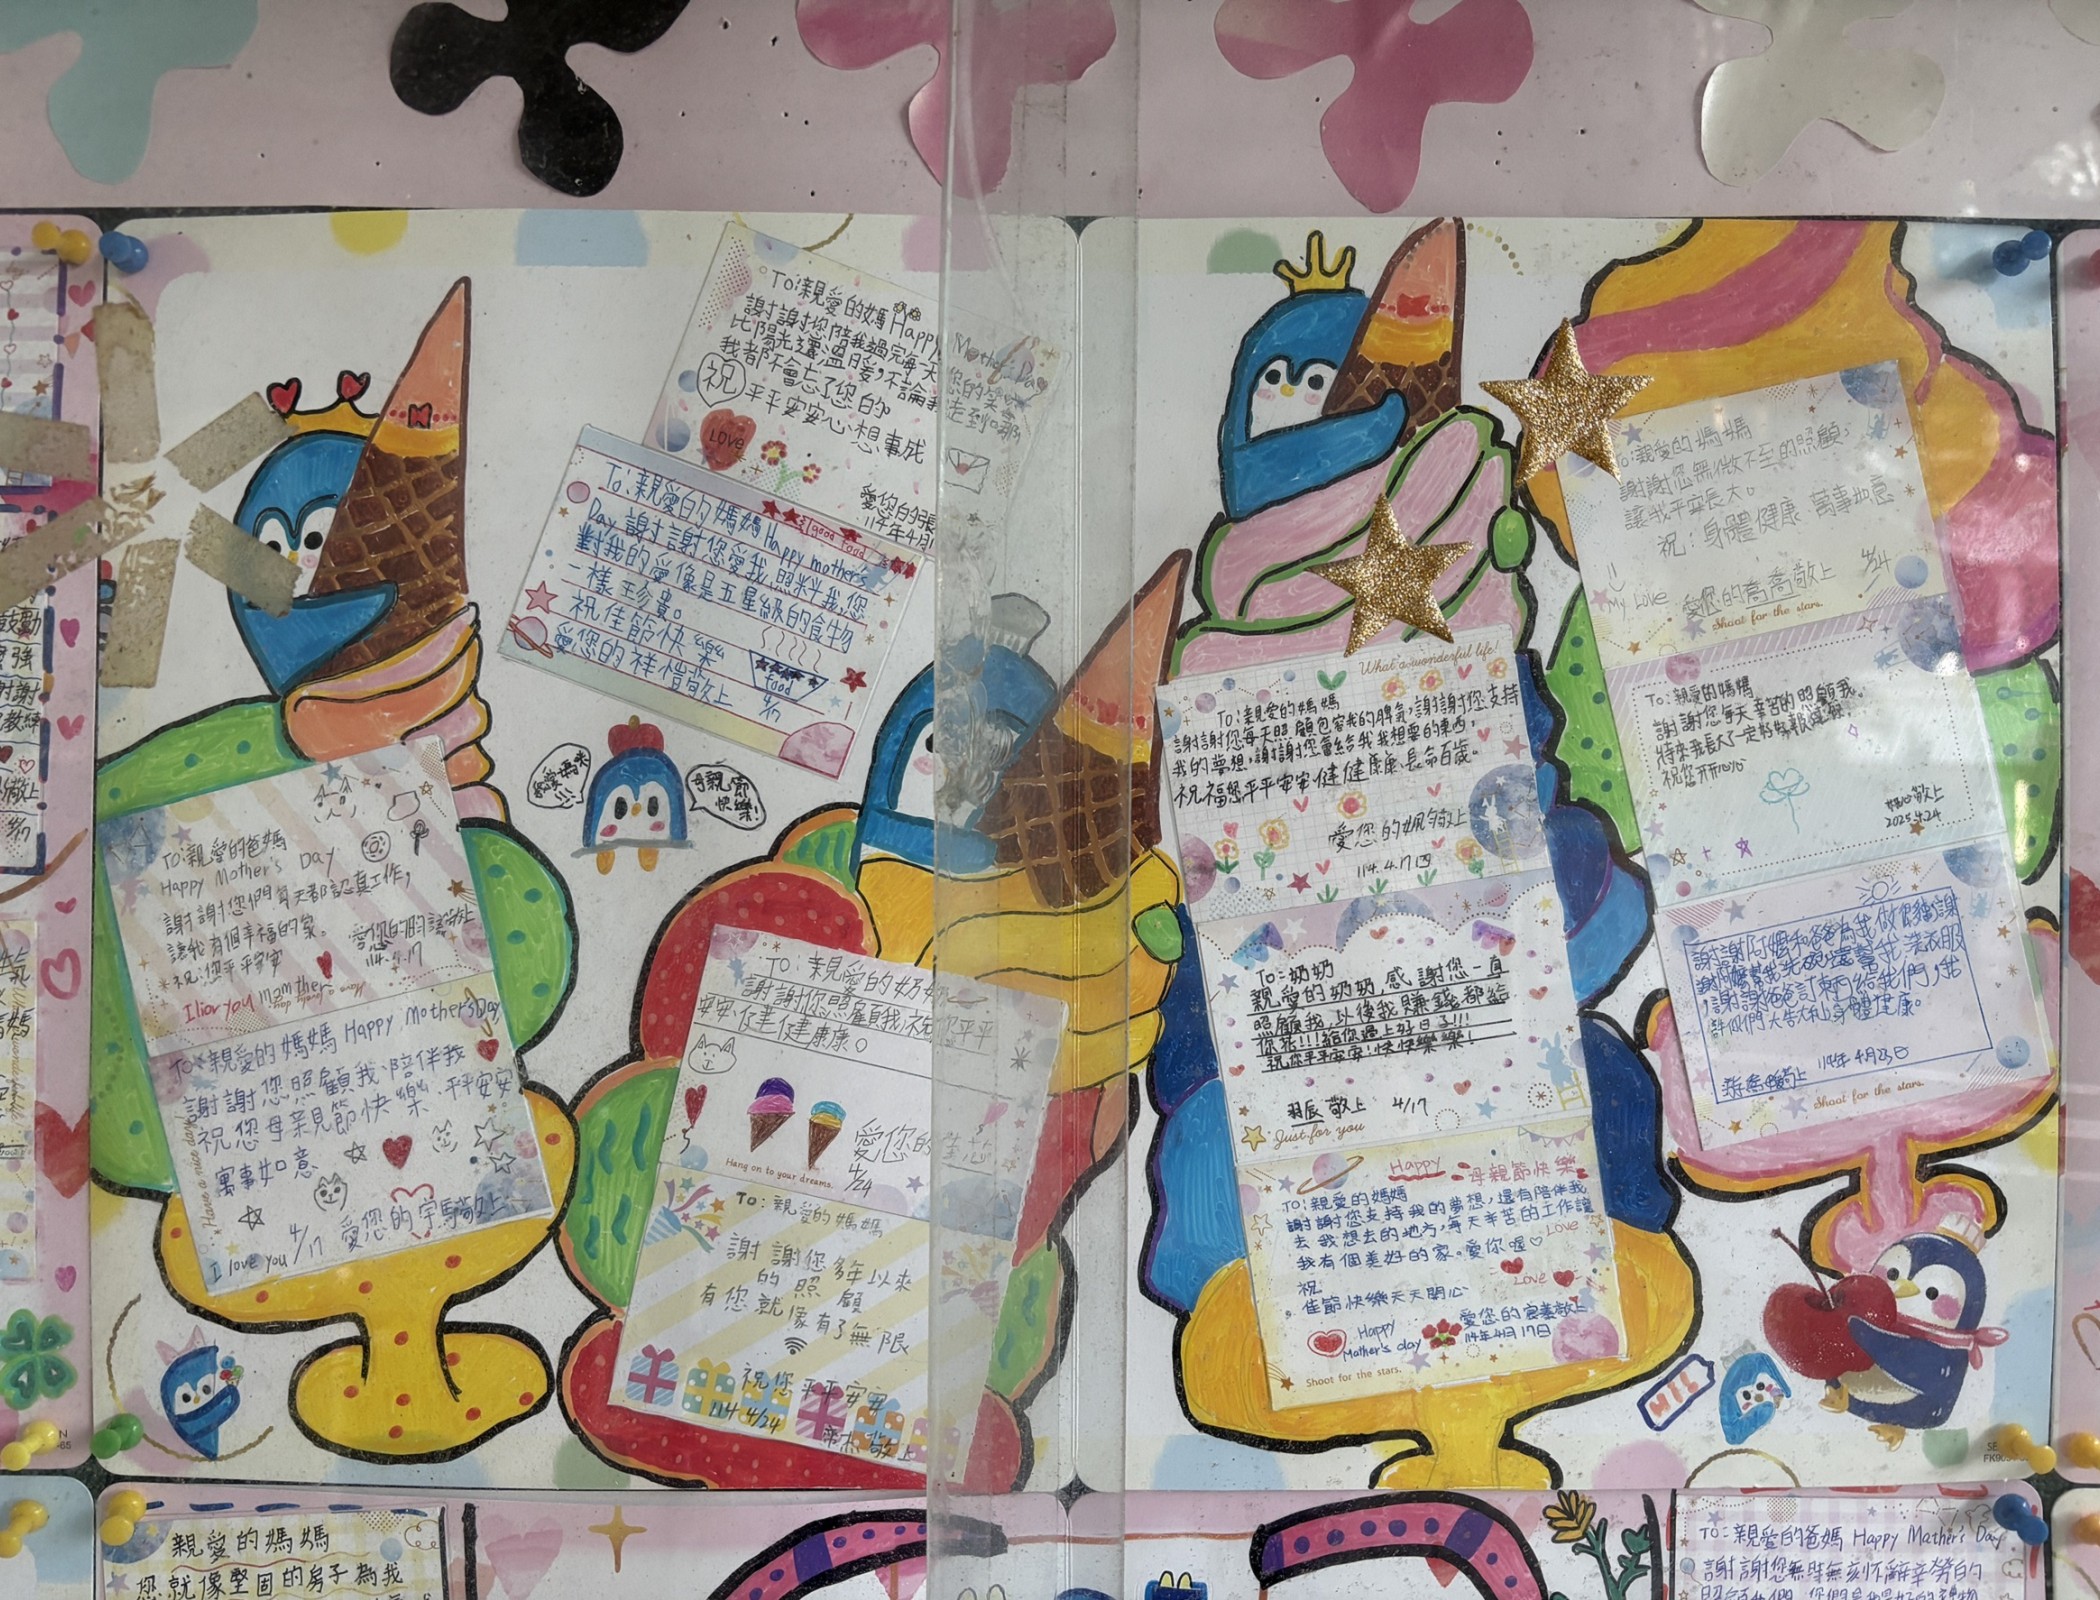 To:親愛的媽 Happy Mother's Day
謝謝您陪我過完每天 您的笑
比陽光還溫暖,不論我走到哪
我都不會忘了您的
祝 平平安安心想事成
LOVE
愛您的
114年4月1
To:親愛的媽媽 Happy mother's
good food
Day 謝謝您愛我,照料我,您
對我的愛像是五星級的食物
一樣珍貴。
祝佳節快樂
food
愛您的祥惜敬上
4/17
我愛媽咪
!!!
母親節
快樂!
To:親愛的爸媽
Happy Mother's Day
謝謝您們每天都認真工作,
讓我有個幸福的家。
祝:您平平安安
愛您的
114.4.17
Have a lovely day
To:親愛的媽媽 Happy Mother's Day
謝謝您照顧我、陪伴我
祝您母親節快樂、平平安安
萬事如意
Have a nice day
I love you 4/17 愛您的宇駽敬上
To:親愛的奶奶
謝謝你照顧我,祝您平平
安安、健健康康。
愛您的
4/24
Hang on to your dreams.
To:親愛的媽媽
謝謝您多年以來
的照顧
有您就像有了無限
祝您平平安安
114 4/24
敬上
What a wonderful life!
To:親愛的媽媽
謝謝您每天照顧包容我的脾氣,謝謝您支持
我的夢想,謝謝您會給我我想要的東西,
祝福您平平安安、健健康康、長命百歲。
愛您的 敬上
114.4.17 四
To:奶奶
親愛的奶奶,感謝您一直
照顧我,以後我賺錢都給
你花!!!給你過上好日子!!!
祝你平平安安!快快樂樂!
羽辰 敬上 4/17
Just for you
Happy 母親節快樂
To:親愛的媽媽
謝謝您支持我的夢想,還有陪伴我
去我想去的地方,每天辛苦的工作讓
我有個美好的家。愛你喔♡
Love
Love
祝
佳節快樂天天開心
Happy
Mother's day
愛您的 敬上
114年4月17日
Shoot for the stars.
To:親愛的媽媽
謝謝您無微不至的照顧,
讓我平安長大。
祝:身體健康 萬事如意
My Love 愛您的喬喬敬上 4/24
Shoot for the stars.
To:親愛的媽媽
謝謝您每天辛苦的照顧我。
等來我長大了一定好好報答您
祝您開開心心
敬上
2025.4.24
謝謝阿嬤和爸爸為我做的 謝
謝阿嬤幫我洗碗還幫我洗衣服
,謝謝爸爸訂東西給我們,我
許你們大吉大利身體健康。
114年4月23日
敬上
Shoot for the stars.
親愛的媽媽
您就像堅固的房子為我
To:親愛的爸媽 Happy Mother's Day
謝謝您無時無刻不辭辛勞的